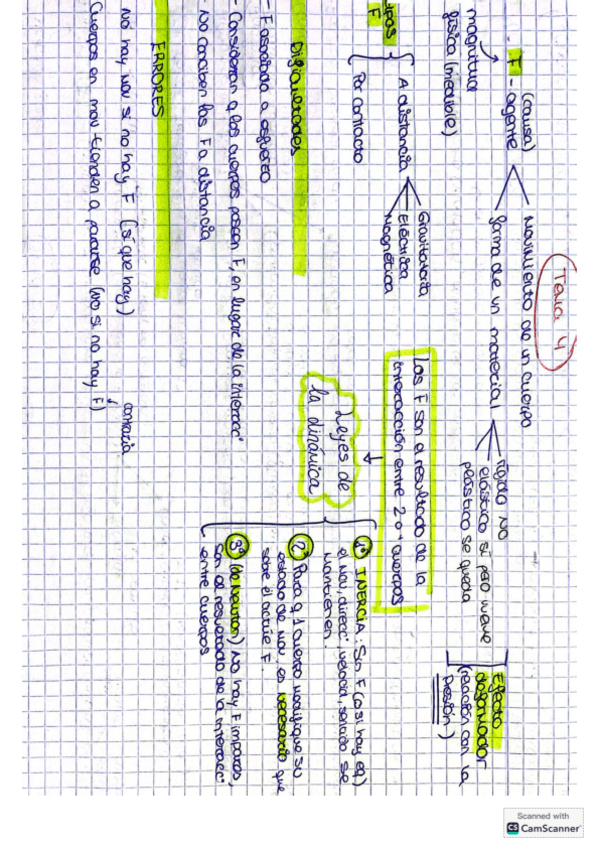 Tema 4
(causa)
F - agente
magnitud
física (medible)
Movimiento de un cuerpo
forma de un material
rígido NO
elástico sí pero vuelve
plástico se queda
Efecto
deformador
(relación con la
presión)
tipos
F
A distancia
Por contacto
Gravitatoria
Eléctrica
Magnética
Las F son el resultado de la
interacción entre 2 o + cuerpos
Leyes de
la dinámica
1º INERCIA: Sin F (o si hay eq)
el mov, direcc, velocidad, sentido se
mantienen.
2º Para q 1 cuerpo modifique su
estado de mov. es necesario que
sobre él actúe F.
3º (de Newton) No hay F impares,
son el resultado de la interacc
entre cuerpos
Dificultades
- F asociada a esfuerzo
- Consideran q los cuerpos poseen F, en lugar de la interacc
- No conciben las F a distancia
ERRORES
No hay mov si no hay F (sí que hay)
Cuerpos en mov tienden a pararse (no si no hay F)
contraria
Scanned with
CS CamScanner